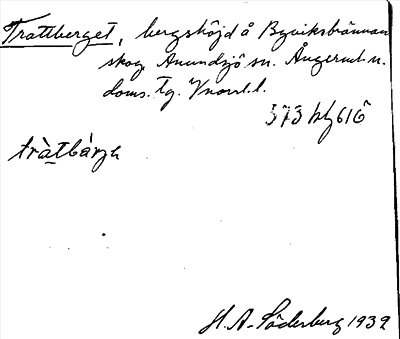 Trattberget, bergshöjd å Byviksbrännan
skog Anundsjö sn. Ångerml. n.
doms. tg. Vnorrl. l.
573 bfj 616
tràtbàrje
H. A. Söderberg 1932